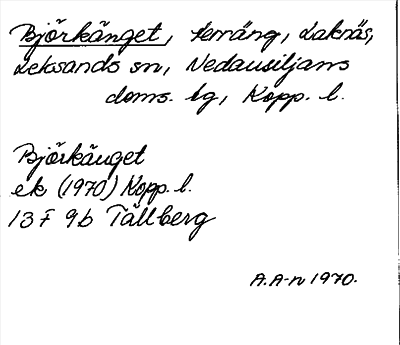 Björkänget, terräng, Laknäs,
Leksands sn, Nedansiljans
doms. lg, Kopp. l.
Björkänget
ek (1970) Kopp. l.
13 F 9b Tällberg
A.A-n 1970.